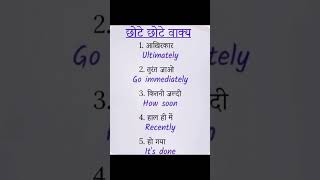 छोटे छोटे वाक्य
1. आखिरकार
Ultimately
2. तुरंत जाओ
Go immediately
3. कितनी जल्दी
How soon
4. हाल ही में
Recently
5. हो गया
It's done